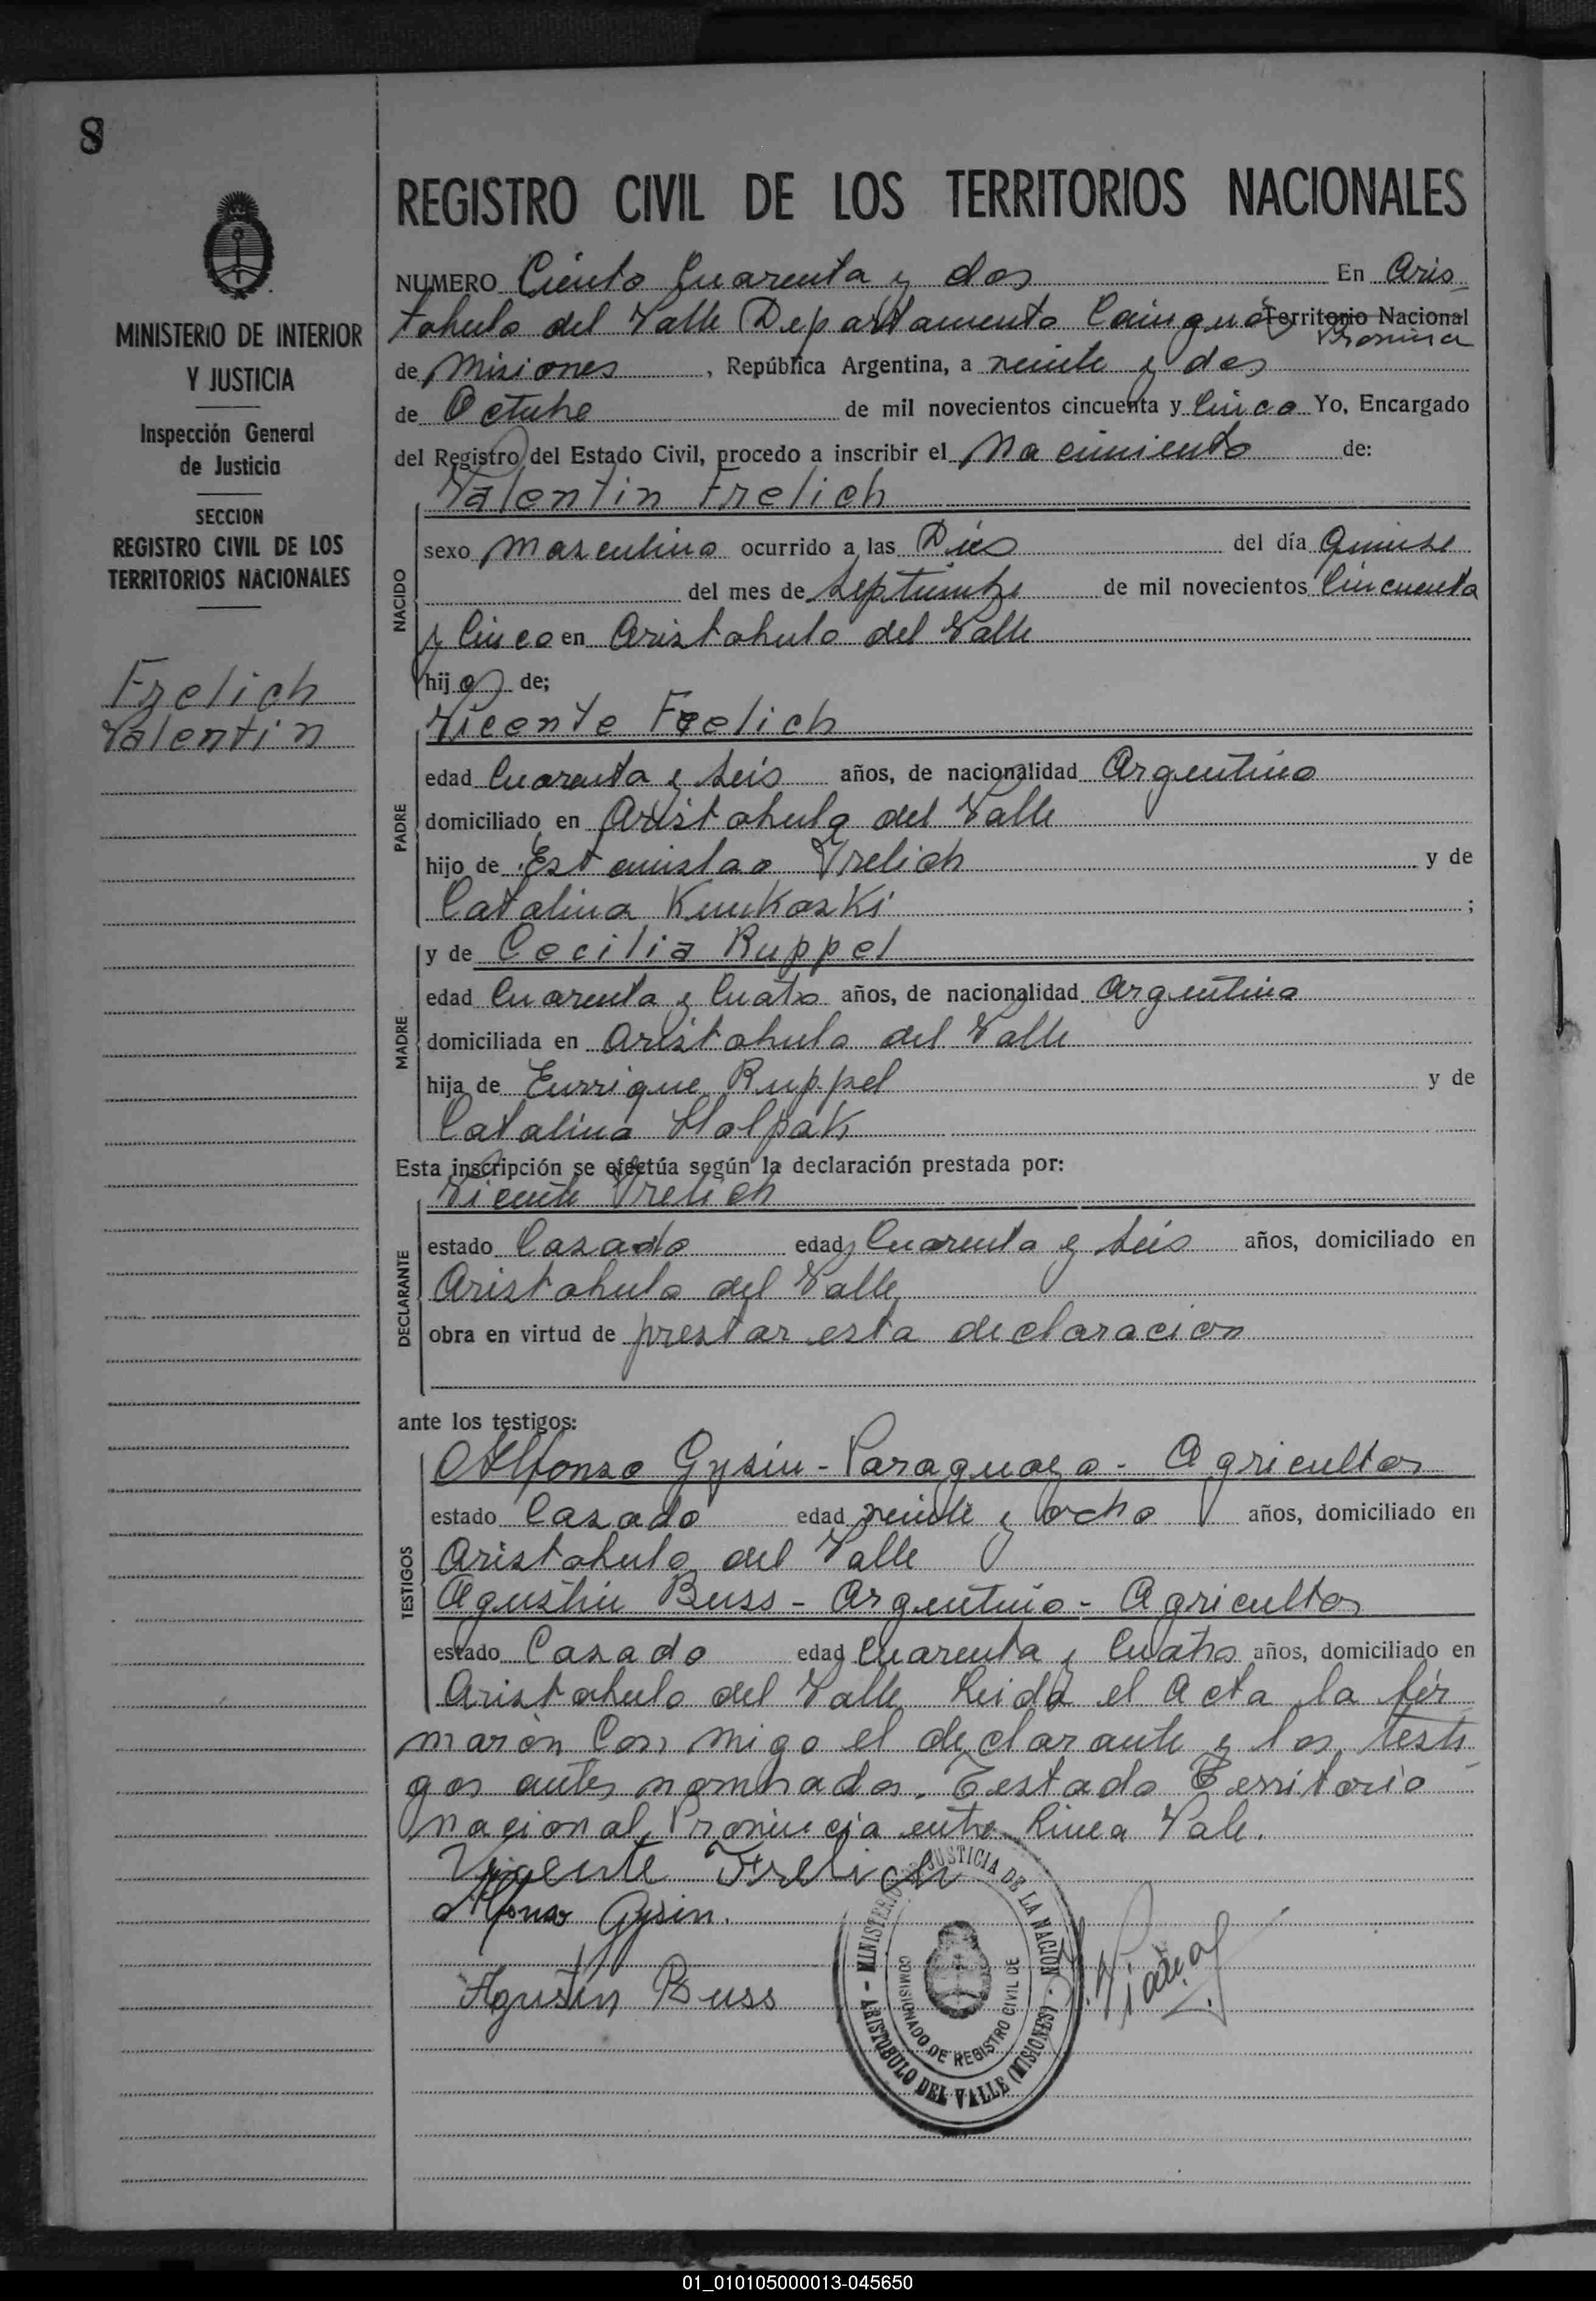 8
REGISTRO CIVIL DE LOS TERRITORIOS NACIONALES
MINISTERIO DE INTERIOR
Y JUSTICIA
Inspección General
de Justicia
SECCION
REGISTRO CIVIL DE LOS
TERRITORIOS NACIONALES
Frelich
Valentin
NUMERO Ciento Cuarenta y dos En Aris
tobulo del Valle Departamento Cainguás Territorio Nacional
Provincia
de Misiones, República Argentina, a veinte y dos
de Octubre de mil novecientos cincuenta y Cinco Yo, Encargado
del Registro del Estado Civil, procedo a inscribir el Nacimiento de:
Valentin Frelich
NACIDO
sexo Masculino ocurrido a las Diés del día Quinse
del mes de Septiembre de mil novecientos Cincuenta
y Cinco en Aristobulo del Valle
hijo de;
Vicente Frelich
PADRE
edad Cuarenta y Seis años, de nacionalidad Argentino
domiciliado en Aristobulo del Valle
hijo de Estanislao Frelich y de
Catalina Kunkoski;
MADRE
y de Cecilia Ruppel
edad Cuarenta y Cuatro años, de nacionalidad Argentina
domiciliada en Aristobulo del Valle
hija de Enrrique Ruppel y de
Catalina Holpak
Esta inscripción se efectúa según la declaración prestada por:
Vicente Frelich
DECLARANTE
estado Casado edad Cuarenta y Seis años, domiciliado en
Aristobulo del Valle
obra en virtud de prestar esta declaracion
ante los testigos:
Alfonso Gysin - Paraguayo - Agricultor
TESTIGOS
estado Casado edad veinte y ocho años, domiciliado en
Aristobulo del Valle
Agustin Buss - Argentino - Agricultor
estado Casado edad Cuarenta y Cuatro años, domiciliado en
Aristobulo del Valle Leida el Acta la fir
marón Con migo el declarante y los testi
gos antes nombrados. Testado Territorio
nacional, Provincia entre Linea Vale.
Vicente Frelich
Alfonso Gysin.
Agustín Buss
MINISTERIO DE JUSTICIA DE LA NACION - ARISTOBULO DEL VALLE (MISIONES)
COMISIONADO DE REGISTRO CIVIL DE
01_010105000013-045650